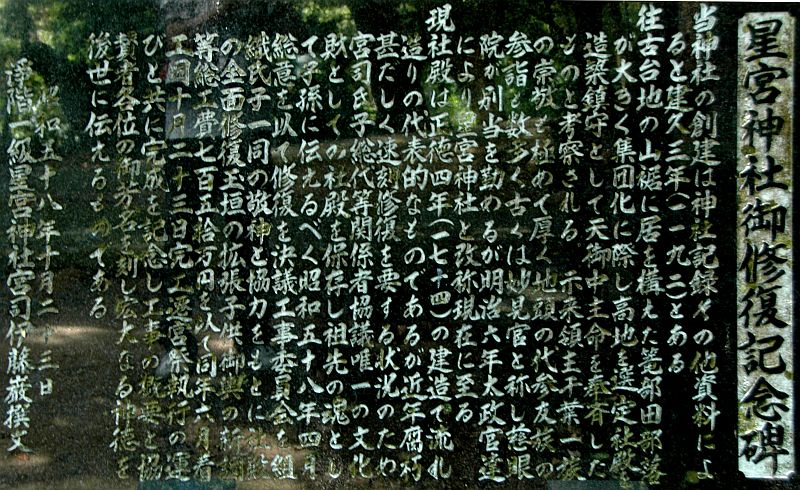 星宮神社御修復記念碑
当神社の創建は神社記録々の他資料によ
ると建久三年(一一九二)とある
往古台地の山裾に居を構えた篭部田部落
が大きく集団化に際し高地を選定社殿を
造築鎮守として天御中主命を奉斉した
ものと考察される 示来領主千葉一族
の崇敬を極めて厚く地頭の代参友族の
参詣も数多く古くは妙見宮と称し慈眼
院が別当を勤めるが明治六年太政官達
により星宮神社と改称現在に至る
現社殿は正徳四年(一七十四)の建造で流れ
造りの代表的なものであるが近年腐朽
甚だしく速刻修復を要する状況のため
宮司氏子総代等関係者協議唯一の文化
財としての社殿を保存し祖先の魂とし
て子孫に伝えるべく昭和五十八年四月
総意を以て修復を決議工事委員会を組
織氏子一同の敬神と協力をもとに社殿
の全面修復玉垣の拡張子供御輿の新調
等総工費七百五拾万円を以て同年六月着
工同十月二十三日完工遷宮祭執行の運
びと共に完成を記念し工事の概要と協
賛者各位の御芳名を刻し広大なる神徳を
後世に伝えるものである
昭和五十八年十月二十三日
浄階一級星宮神社宮司伊藤巌撰文